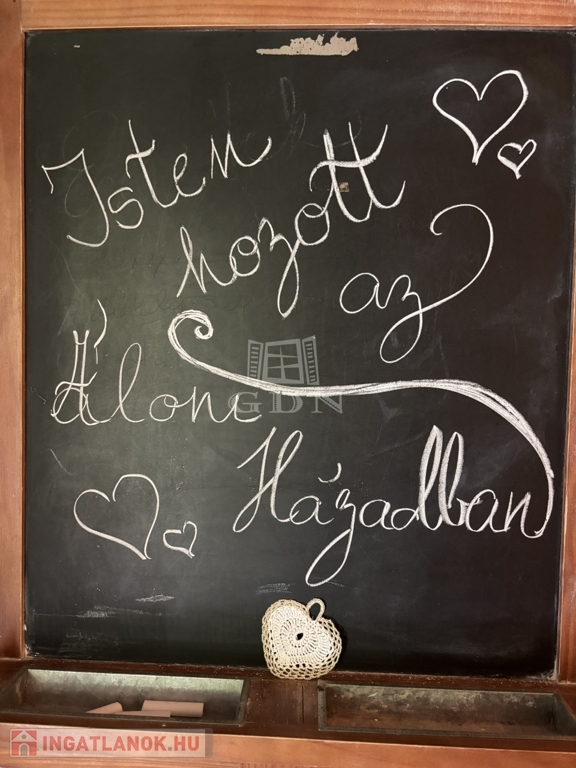 Isten
hozott
az
Álom
GDN
Házadban
INGATLANOK.HU